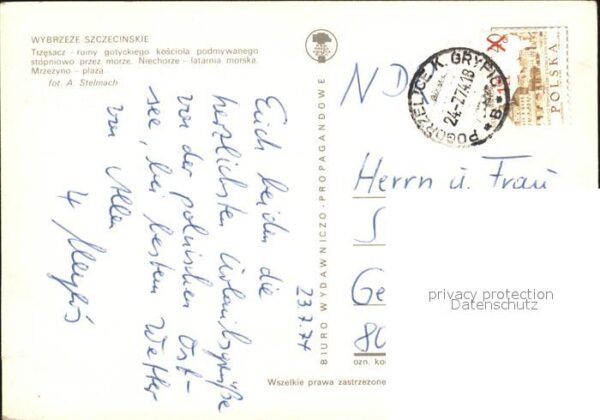 WYBRZEŻE SZCZECIŃSKIE
Trzęsacz - ruiny gotyckiego kościoła podmywanego
stopniowo przez morze. Niechorze - latarnia morska.
Mrzeżyno - plaża.
fot. A. Stelmach
Euch beiden die
herzlichsten Urlaubsgrüße
von der polnischen Ost-
see, bei bestem Wetter
von Allen
4
23.7.74
BIURO WYDAWNICZO-PROPAGANDOWE
Wszelkie prawa zastrzeżone
POGORZELICE K. GRYFIC
24-7.74.18
* B *
40
POLSKA
Herrn u. Frau
S
Ge
80
ozn. ko
privacy protection
Datenschutz